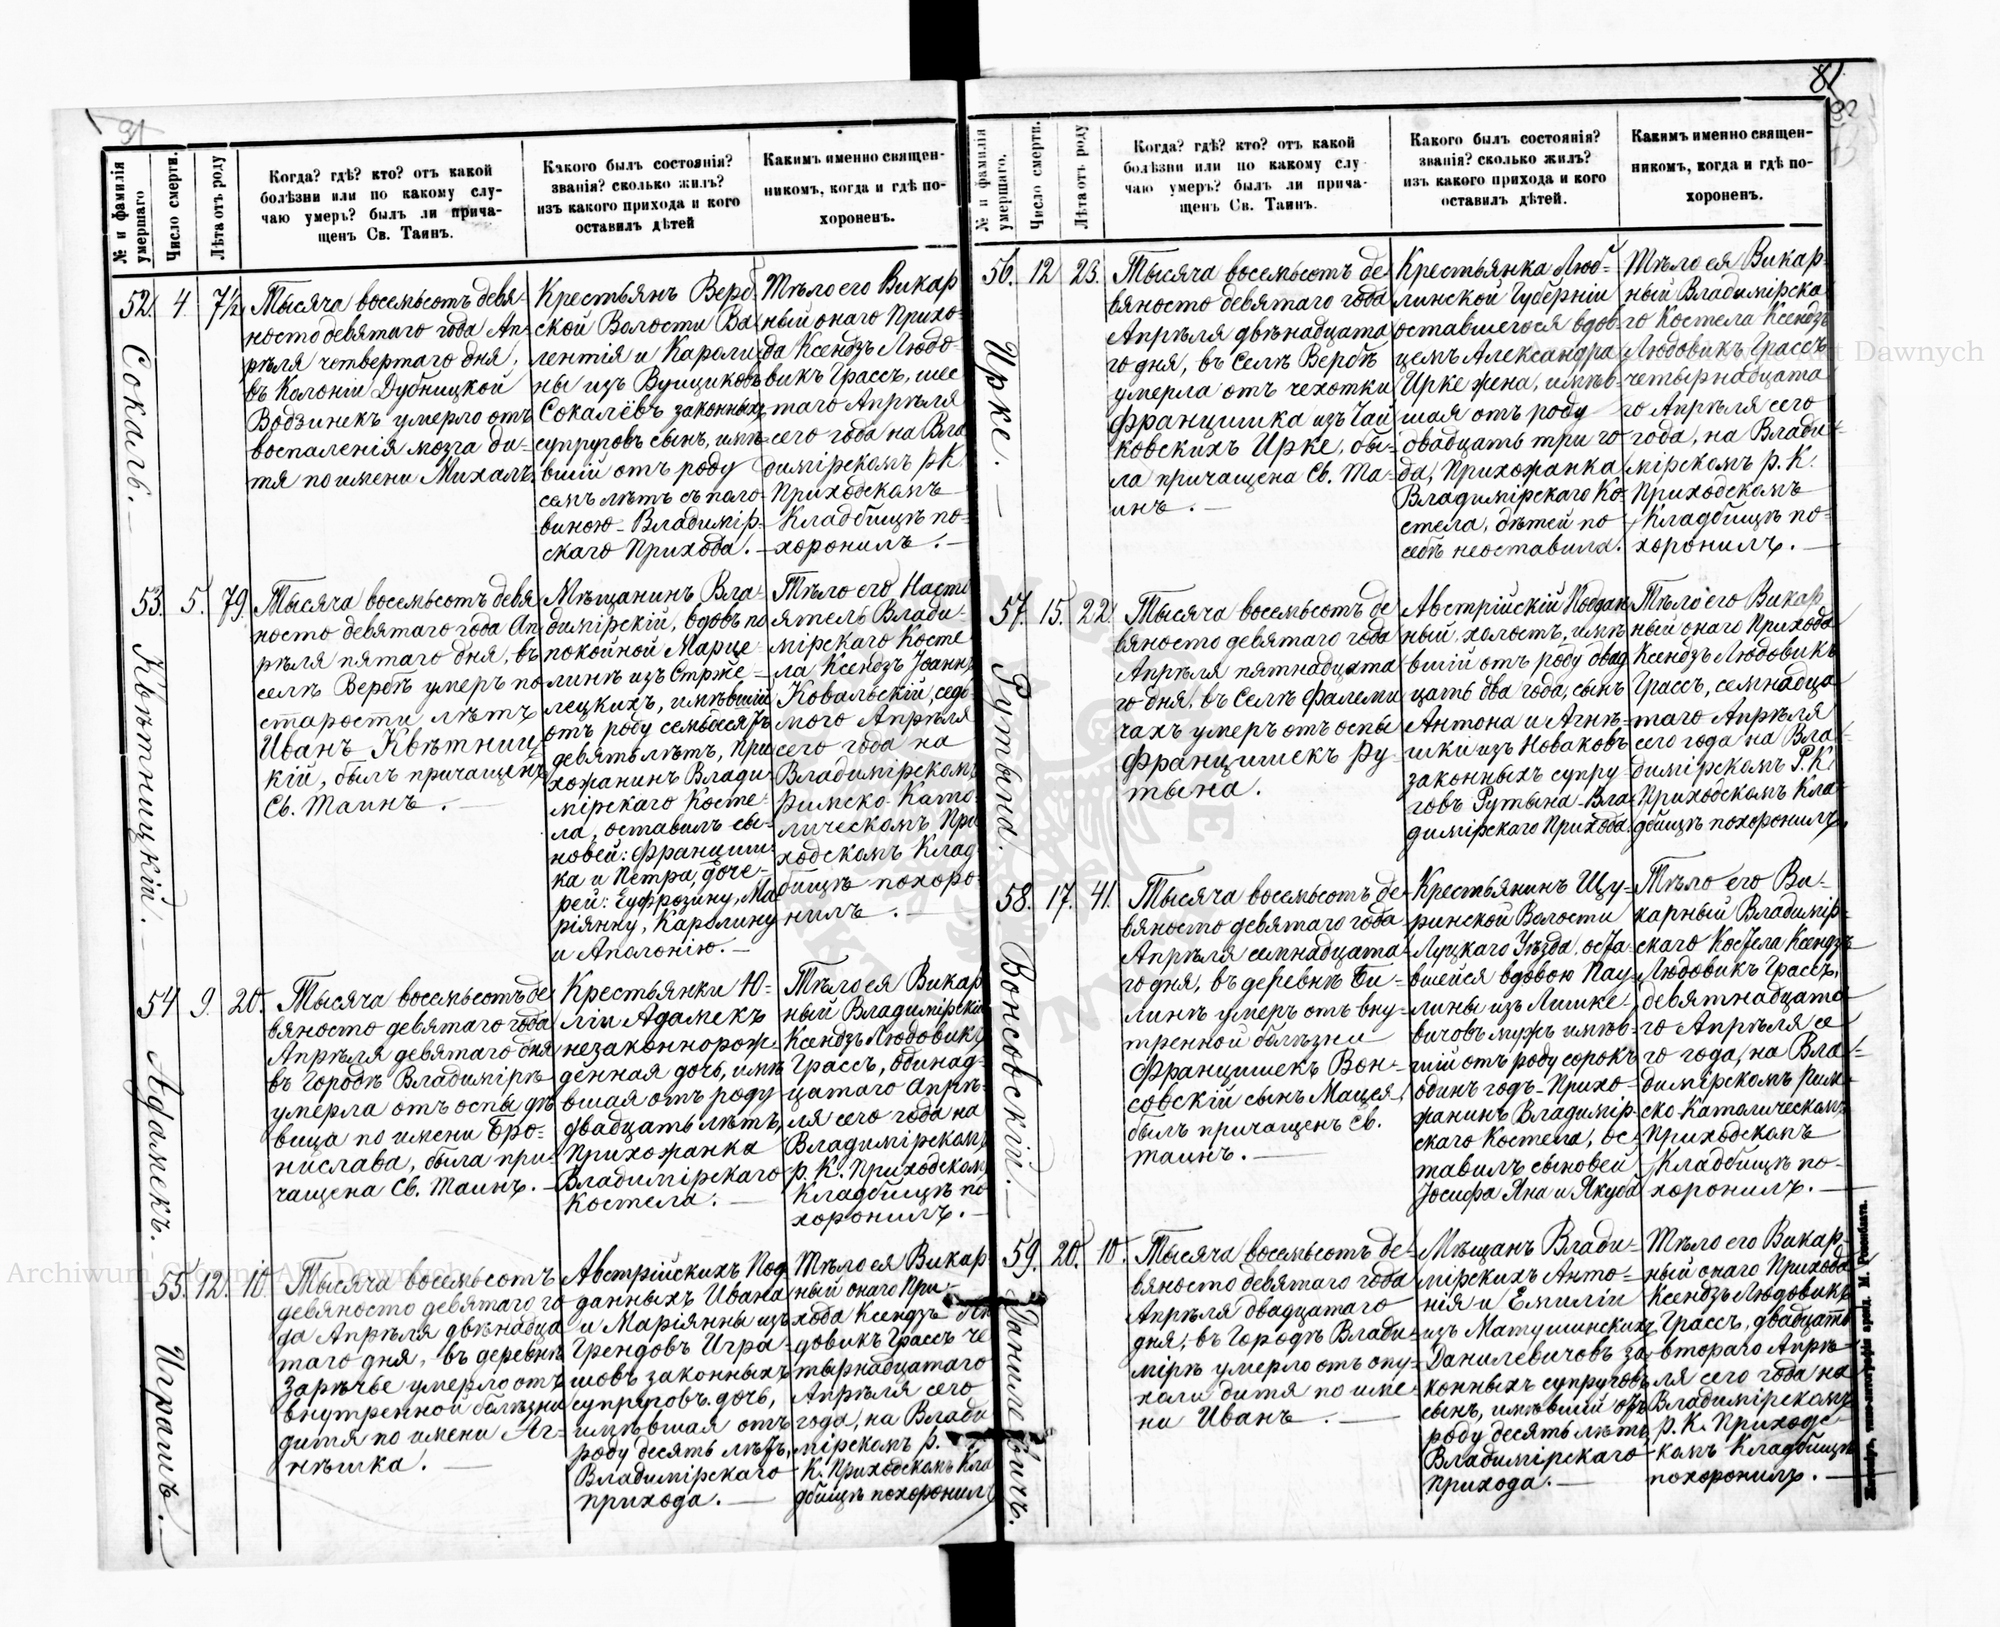 31
№ и фамилія умершаго
Число смерти.
Лѣта отъ роду
Когда? гдѣ? кто? отъ какой
болѣзни или по какому слу-
чаю умеръ? былъ ли прича-
щенъ Св. Таинъ.
Какого былъ состоянія?
званія? сколько жилъ?
изъ какого прихода и кого
оставилъ дѣтей
Какимъ именно священ-
никомъ, когда и гдѣ по-
хороненъ.
52.
Сокаль.
4.
7½
Тысяча восемьсотъ девя-
носто девятаго года Ап-
рѣля четвертаго дня,
въ Колоніи Дубницкой
Водзинекъ умерло отъ
воспаленія мозга ди-
тя по имени Михалъ.
Крестьянъ Верб
ской Волости Ва
лентія и Кароли
ны изъ Вуициковъ
Сокалёвъ законныхъ
супруговъ сынъ, имѣ
вшій отъ роду
семъ лѣтъ съ поло-
виною - Владимір-
скаго Прихода.
Тѣло его Викар
ный онаго Прихо-
да Ксендзъ Людо-
викъ Грассъ, шес
таго Апрѣля
сего года на Вла
димірскомъ р. К.
Приходскомъ
Кладбищѣ по-
хоронилъ. —
53.
Квѣтницкій. —
5.
79.
Тысяча восемьсотъ девя
носто девятаго года Ап
рѣля пятаго дня, въ
селѣ Вербѣ умеръ по
старости лѣтъ
Иванъ Квѣтниц
кій, былъ причащенъ
Св. Таинъ. —
Мѣщанинъ Вла-
димірскій, вдовъ по
покойной Марце-
линѣ изъ Стрже-
лецкихъ, имѣвшій
отъ роду семьдесятъ
девять лѣтъ, при
хожанинъ Влади-
мірскаго Косте-
ла, оставилъ сы-
новей: Францишка
ка и Петра, доче-
рей: Еуфрозину, Ма
ріянну, Каролину
и Аполонію. —
Тѣло его Насто
ятель Влади-
мірскаго Косте
ла Ксендзъ Іоаннъ
Ковальскій, седь-
мого Апрѣля
сего года на
Владимірскомъ
Римско-Като-
лическомъ При
ходскомъ Клад
бищѣ похоро-
нилъ. —
54
Адамекъ. —
9.
20.
Тысяча восемьсотъ де
вяносто девятаго года
Апрѣля девятаго дня
въ Городѣ Владимірѣ
умерла отъ оспы дѣ
вица по имени Бро-
нислава, была при-
чащена Св. Таинъ. —
Крестьянки Ю-
ліи Адамекъ
незаконнорож-
денная дочь, имѣ
вшая отъ роду
двадцать лѣтъ,
Прихожанка
Владимірскаго
Костела. —
Тѣло ея Викар
ный Владимірскій
Ксендзъ Людовикъ
Грассъ, одинад-
цатаго Апрѣ-
ля сего года на
Владимірскомъ
р. К. Приходскомъ
Кладбищѣ по
хоронилъ. —
55.
Играшъ. —
12.
10.
Тысяча восемьсотъ
девяносто девятаго го
да Апрѣля двѣнадца
таго дня, въ деревнѣ
Зарѣчье умерло отъ
внутренной болѣзни
дитя по имени Аг-
нѣшка. —
Австрійскихъ Под
данныхъ Ивана
и Маріянны изъ
Грендовъ Игра-
шовъ законныхъ
супруговъ дочь,
имѣвшая отъ
роду десять лѣтъ,
Владимірскаго
прихода. —
Тѣло ея Викар
ный онаго При-
хода Ксендзъ Лю
довикъ Грассъ че
тырнадцатаго
Апрѣля сего
года, на Влади
мірскомъ р.
К. Приходскомъ Кла
дбищѣ похоронилъ
81
32
№ и фамилія умершаго.
Число смерти.
Лѣта отъ роду
Когда? гдѣ? кто? отъ какой
болѣзни или по какому слу
чаю умеръ? былъ ли прича-
щенъ Св. Таинъ.
Какого былъ состоянія?
званія? сколько жилъ?
изъ какого прихода и кого
оставилъ дѣтей.
Какимъ именно священ-
никомъ, когда и гдѣ по-
хороненъ.
56.
Ирке. —
12
23.
Тысяча восемьсотъ де-
вяносто девятаго года
Апрѣля двѣнадцата
го дня, въ Селѣ Вербѣ
умерла отъ чехотки
Францишка изъ Чай
ковскихъ Ирке, бы-
ла причащена Св. Та-
инъ. —
Крестьянка Люб-
линской Губерніи
оставшегося вдов-
цемъ Александра
Ирке жена, имѣв-
шая отъ роду
двадцать три го
да, Прихожанка
Владимірскаго Ко-
стела, дѣтей по
себѣ неоставила.
Тѣло ея Викар-
ный Владимірска
го Костела Ксендзъ
Людовикъ Грассъ
четырнадцата
го Апрѣля сего
года, на Влади-
мірскомъ р. К.
Приходскомъ
Кладбищѣ по-
хоронилъ. —
57.
Рутына.
15.
22.
Тысяча восемьсотъ де
вяносто девятаго года
Апрѣля пятнадцата
го дня, въ Селѣ Фалеми
чахъ умеръ отъ оспы
Францишекъ Ру-
тына.
Австрійскій Поддан
ный, холостъ, имѣ
вшій отъ роду двад
цать два года, сынъ
Антона и Агнѣ-
шки изъ Новаковъ
законныхъ супру
говъ Рутына - Вла
димірскаго Прихода.
Тѣло его Викар
ный онаго Прихода
Ксендзъ Людовикъ
Грассъ, семнадца
таго Апрѣля
сего года на Вла-
димірскомъ Р. К.
Приходскомъ Кла-
дбищѣ похоронилъ.
58.
Вонсовскій. —
17.
41.
Тысяча восемьсотъ де-
вяносто девятаго года
Апрѣля семнадцата-
го дня, въ деревнѣ Би-
линѣ умеръ отъ вну-
тренной болѣзни
Францишекъ Вон-
совскій сынъ Мацея,
былъ причащенъ Св.
Таинъ. —
Крестьянинъ Щу-
ринской Волости
Луцкаго Уѣзда, оста-
вшейся вдовою Пау-
лины изъ Лишке-
вичовъ мужъ имѣв-
шій отъ роду сорокъ
одинъ годъ - Прихо-
жанинъ Владимір-
скаго Костела, ос-
тавилъ сыновей
Іосифа Яна и Якуба
Тѣло его Ви-
карный Владимір-
скаго Костела Ксендзъ
Людовикъ Грассъ,
девятнадцата-
го Апрѣля се
го года, на Вла-
димірскомъ Рим-
ско-Католическомъ
Приходскомъ
Кладбищѣ по-
хоронилъ. —
59.
Данилевичъ.
20.
10.
Тысяча восемьсотъ де-
вяносто девятаго года
Апрѣля двадцатаго
дня, въ Городѣ Влади-
мірѣ умерло отъ опу-
холи дитя по име-
ни Иванъ. —
Мѣщанъ Влади-
мірскихъ Анто-
нія и Емиліи
изъ Матушинскихъ
Данилевичовъ за-
конныхъ супруговъ
сынъ, имѣвшій отъ
роду десять лѣтъ
Владимірскаго
прихода. —
Тѣло его Викар-
ный онаго Прихода
Ксендзъ Людовикъ
Грассъ, двадцать
втораго Апрѣ-
ля сего года на
Владимірскомъ
р. К. Приходс-
комъ Кладбищѣ
похоронилъ. —
Archiwum Główne Akt Dawnych